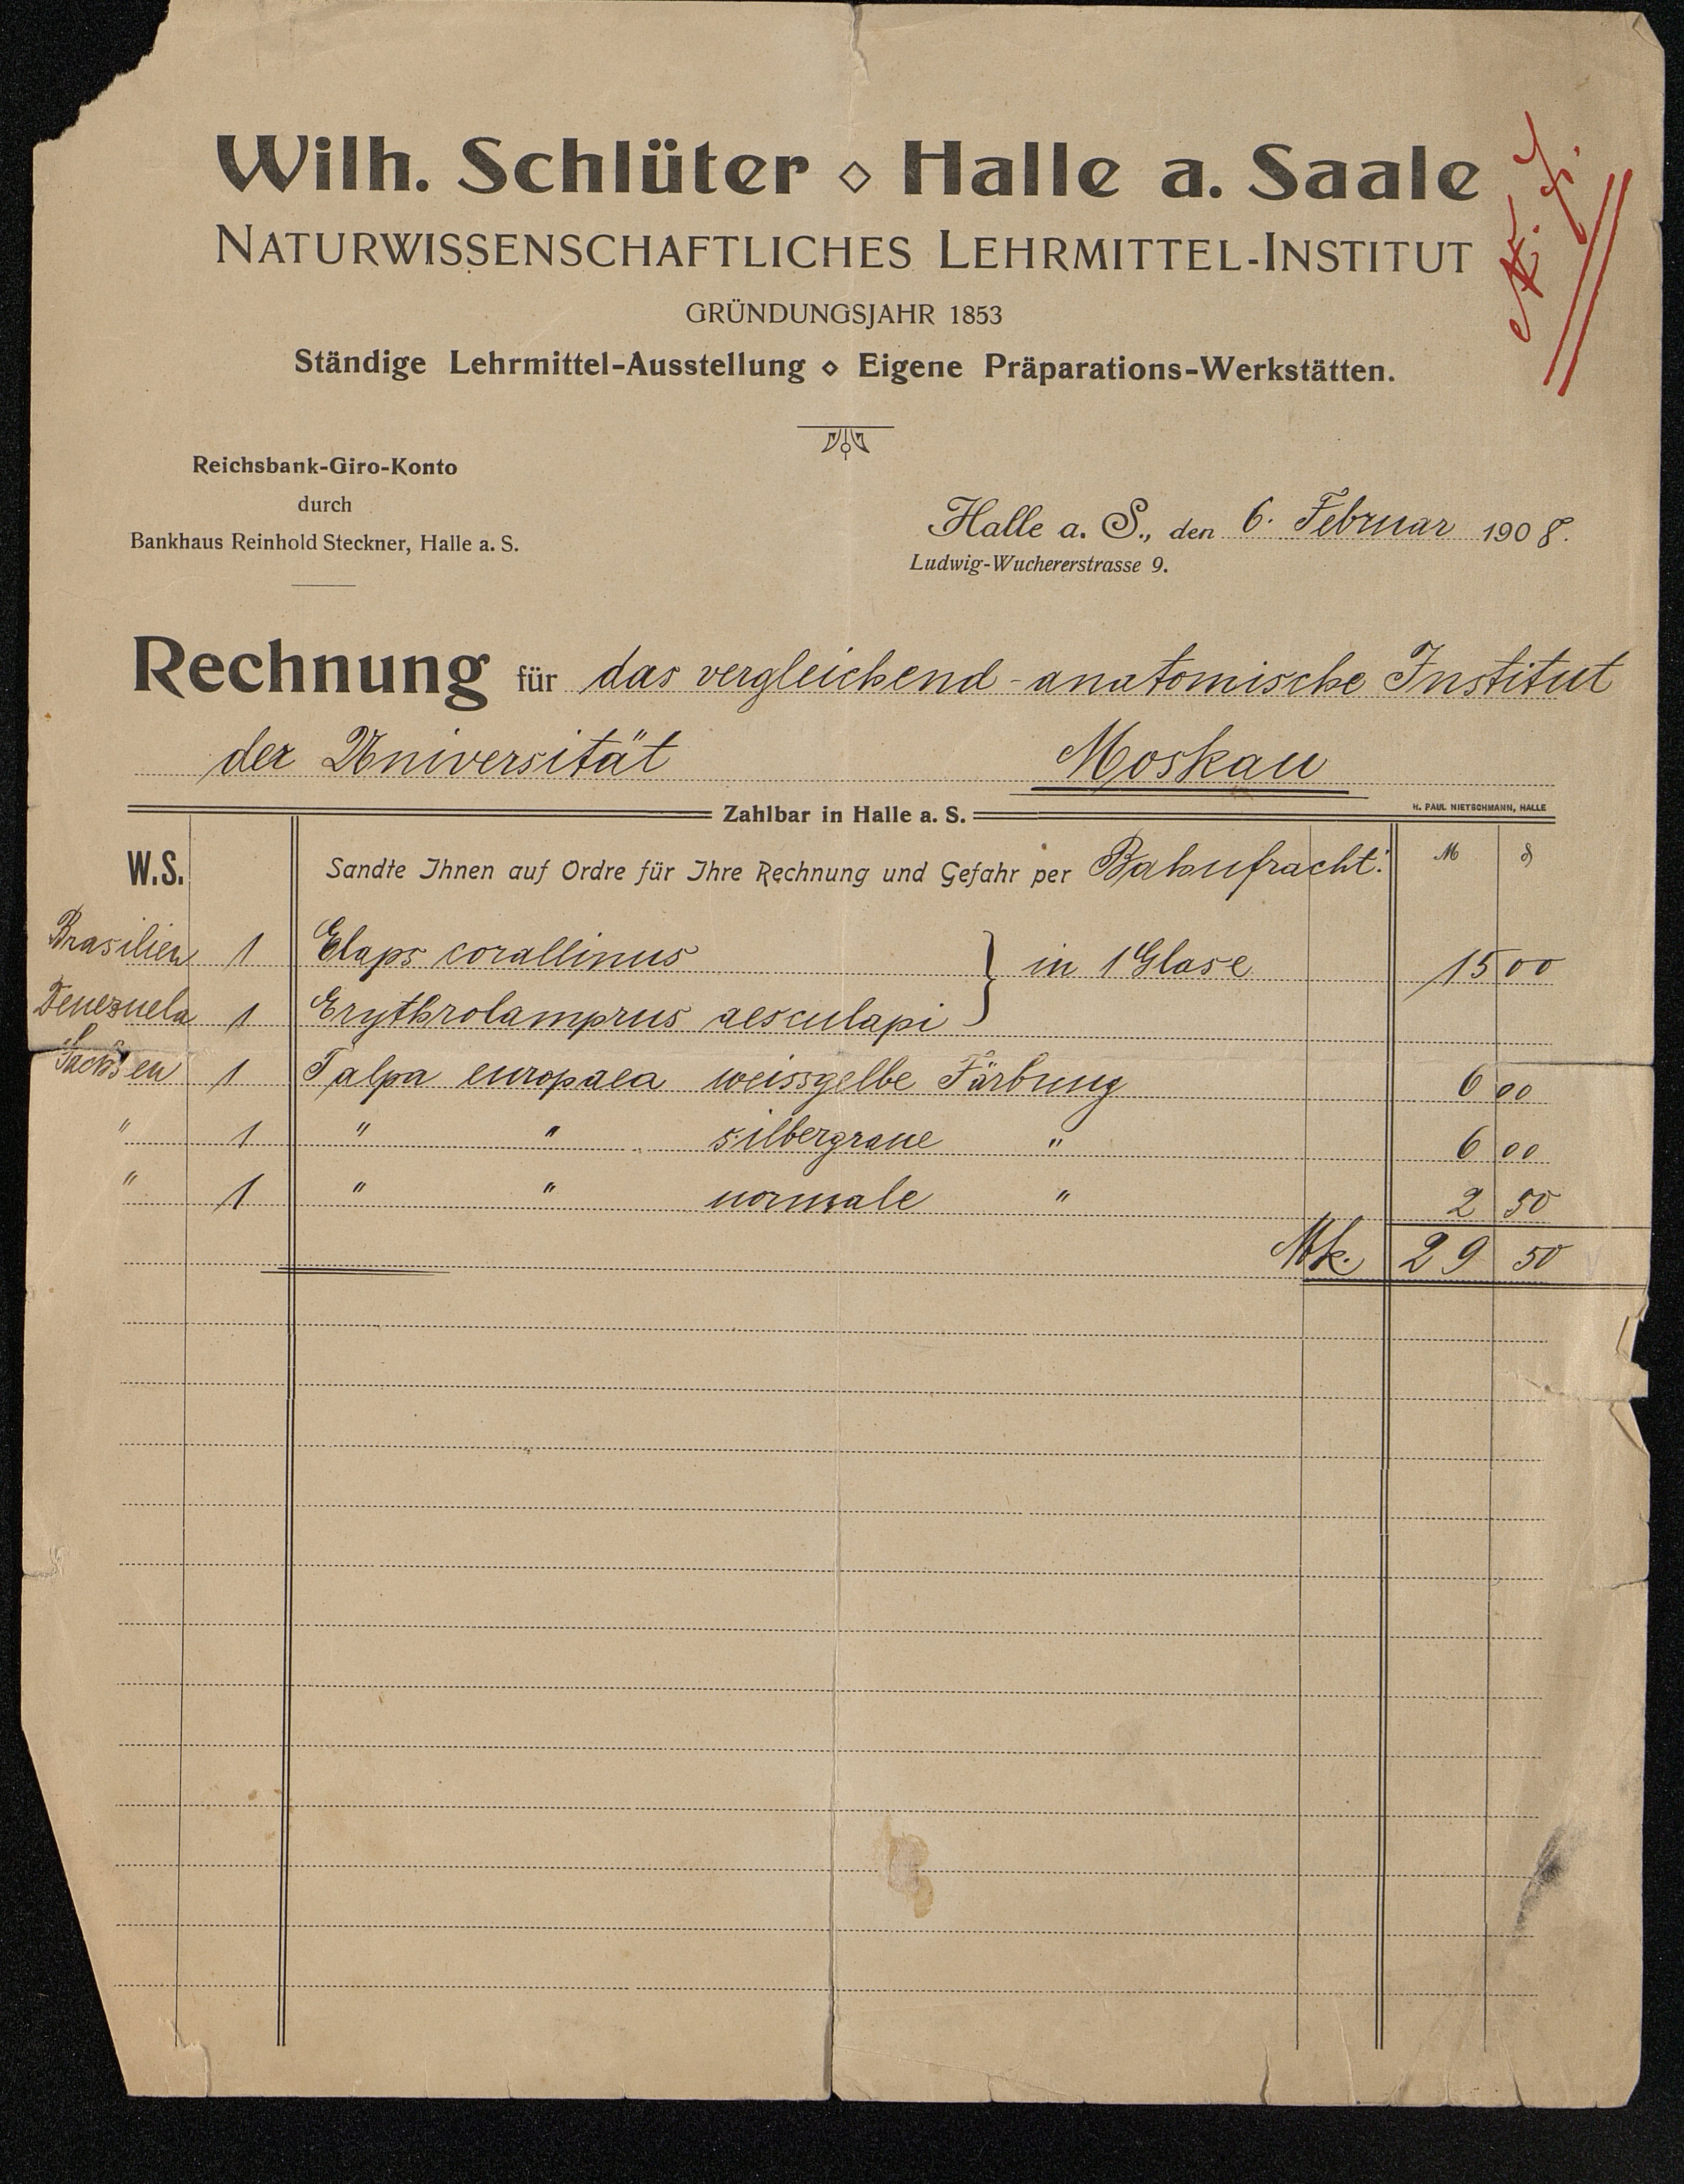 Wilh. Schlüter ◇ Halle a. Saale
NATURWISSENSCHAFTLICHES LEHRMITTEL-INSTITUT
GRÜNDUNGSJAHR 1853
Ständige Lehrmittel-Ausstellung ◇ Eigene Präparations-Werkstätten.
Reichsbank-Giro-Konto
durch
Bankhaus Reinhold Steckner, Halle a. S.
Halle a. S., den 6. Februar 1908.
Ludwig-Wuchererstrasse 9.
Rechnung für das vergleichend-anatomische Institut
der Universität Moskau
Zahlbar in Halle a. S.
H. PAUL NIETSCHMANN, HALLE
W.S. Sandte Ihnen auf Ordre für Ihre Rechnung und Gefahr per Bahnfracht: M ₰
Brasilien 1 Elaps corallinus } in 1 Glase 15 00
Venezuela 1 Erythrolamprus aesculapi
Sachsen 1 Talpa europaea weissgelbe Färbung 6 00
" 1 " " silbergraue " 6 00
" 1 " " normale " 2 50
Mk. 29 50